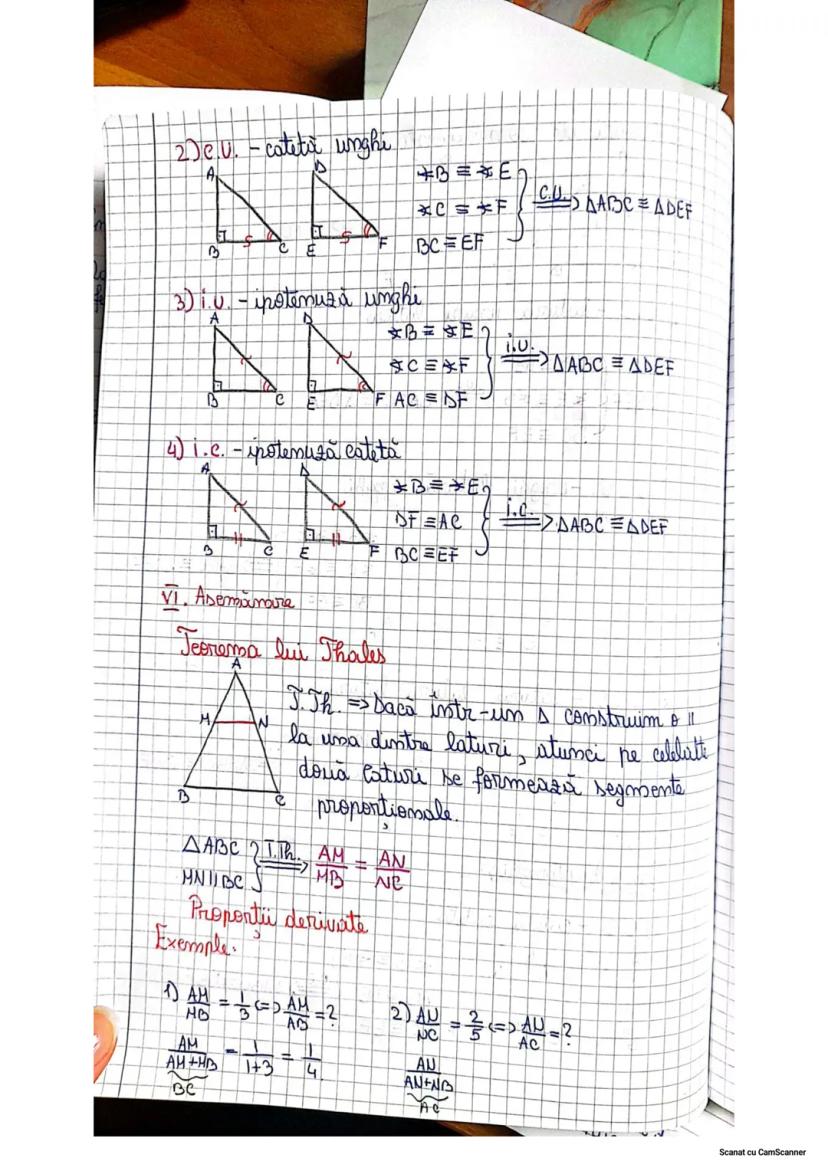 2) C.U. - catetă unghi
A D
∢B ≡ ∢E
∢C ≡ ∢F
BC ≡ EF
C.U. ⟹ ΔABC ≡ ΔDEF
B S C E S F
3) i.U. - ipotenuză unghi
A D
∢B ≡ ∢E
∢C ≡ ∢F
AC ≡ DF
i.U. ⟹ ΔABC ≡ ΔDEF
B C E F
4) i.c. - ipotenuză catetă
A D
∢B ≡ ∢E
DF ≡ AC
BC ≡ EF
i.C. ⟹ ΔABC ≡ ΔDEF
B C E F
VI. Asemănare
Teorema lui Thales
A
M N
B C
T.Th. => Dacă într-un Δ construim o ||
la una dintre laturi, atunci pe celelalte
două laturi se formează segmente
proporționale.
ΔABC
MN||BC
T.Th. ⟹ AM/MB = AN/NC
Proporții derivate
Exemple:
1) AM/MB = 1/3 <=> AM/AB = ?
AM/(AM+MB) = 1/(1+3) = 1/4
BC
2) AN/NC = 2/5 <=> AN/AC = ?
AN/(AN+NB)
AC
Scanat cu CamScanner